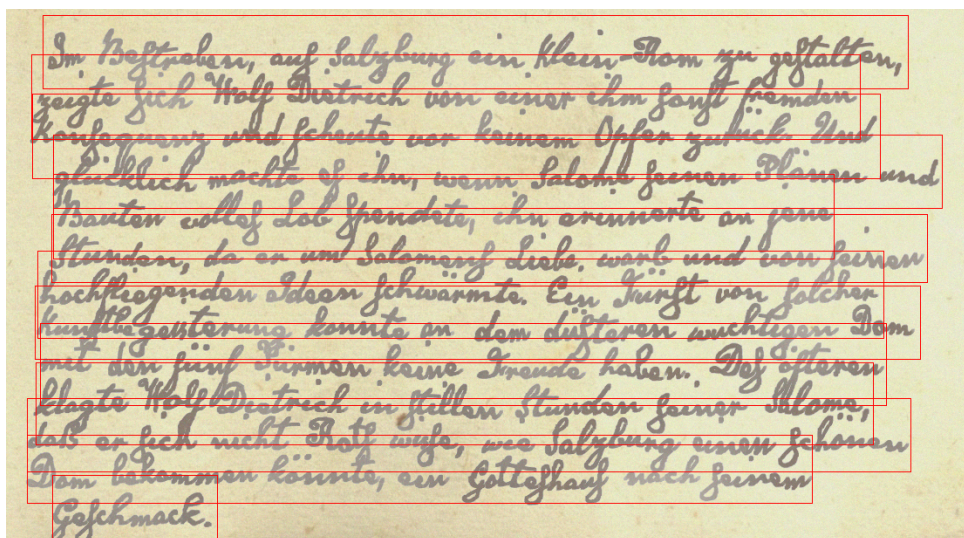 Im Bestreben, auf Salzburg ein Klein-Rom zu gestalten,
zeigte sich Wolf Dietrich von einer ihm sonst fremden
Konsequenz und scheute vor keinem Opfer zurück. Und
glücklich machte es ihn, wenn Salome seinen Plänen und
Bauten volles Lob spendete, ihn erinnerte an jene
Stunden, da er um Salomens Liebe warb und von seinen
hochfliegenden Ideen schwärmte. Ein Fürst von solcher
Kunstbegeisterung konnte an dem düsteren wuchtigen Dom
mit den fünf Türmen keine Freude haben. Des öfteren
klagte Wolf Dietrich in stillen Stunden seiner Salome,
daß er sich nicht Rats wisse, wie Salzburg einen schönen
Dom bekommen könnte, ein Gotteshaus nach seinem
Geschmack.